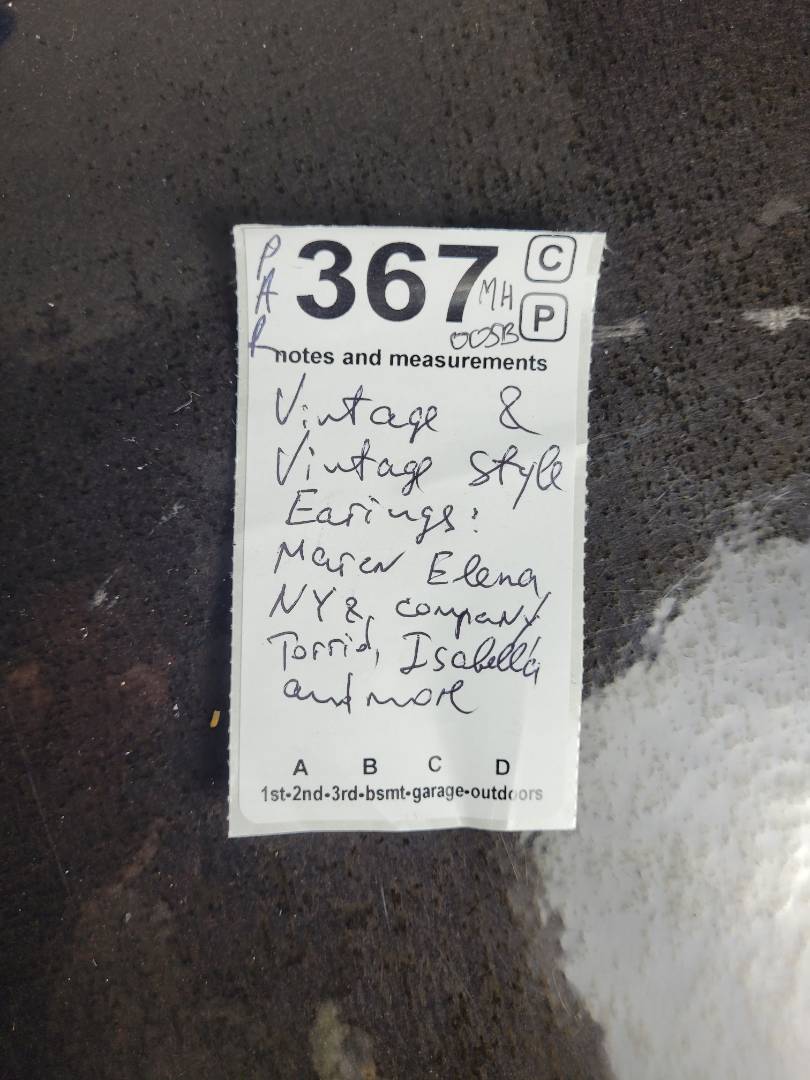 PAR
367
C
MH
P
00SB
notes and measurements
Vintage &
Vintage Style
Earings:
Maren Elena
NY & company
Torrid, Isabella
and more
A B C D
1st-2nd-3rd-bsmt-garage-outdoors